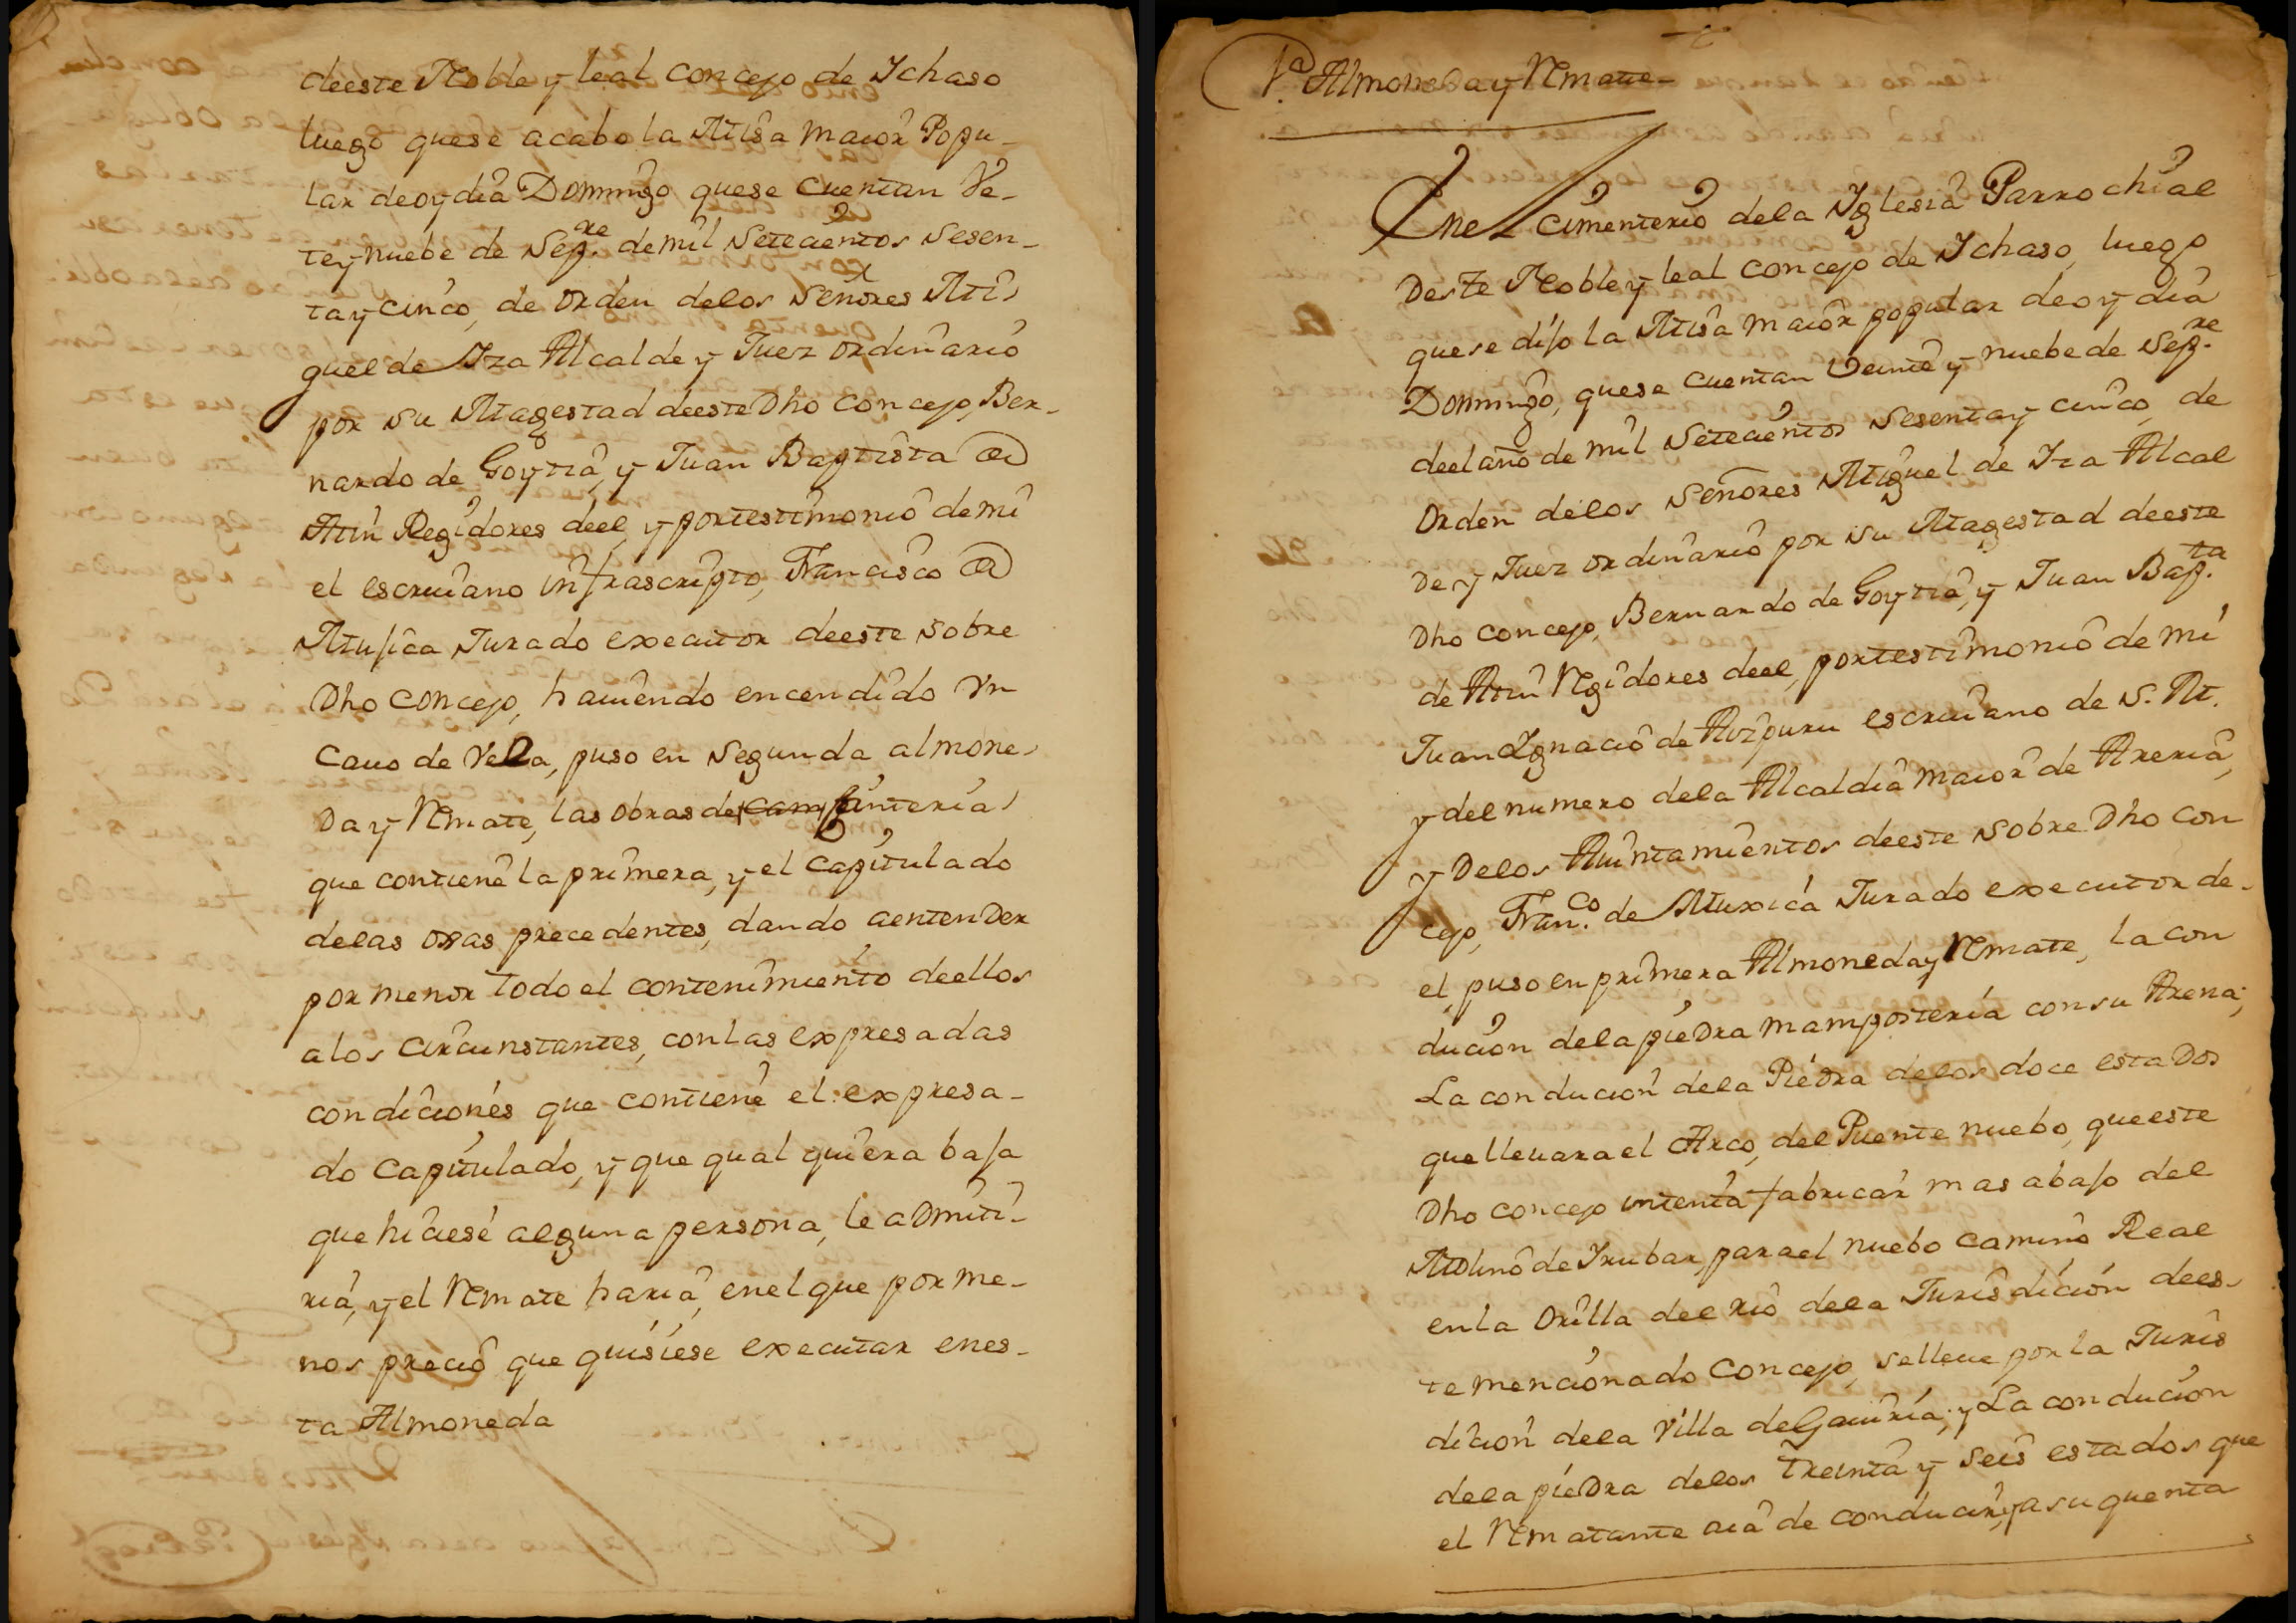 deeste Noble y leal concejo de Ichaso
luego quese acabo la Missa maior Popu-
lar deoy dia Domingo quese cuentan Ve-
tey nuebe de Sep.re de mil setecientos sesen-
ta y cinco, de orden delos señores Mi-
guel de Iza Alcalde y Juez ordinario
por su Magestad deeste Dho concejo, Ber-
nardo de Goytia, y Juan Baptista de
Min Regidores deel, y por testimonio de mi
el escriuano infrascripto, Francisco de
Mujica Jurado executor deeste sobre
Dho concejo, hauiendo encendido Vn
Cauo de Vela, puso en segunda almone-
Da y Rmate, las obras de cam cinteria
que contiene la primera, y el capitulado
delas ojas precedentes, dando aentender
por menor todo el contenimiento deellos
alos circunstantes, con las expresadas
condiciones que contiene el expresa-
do capitulado, y que qual quiera baja
que hiciese alguna persona, le admiti-
ria, y el Rmate haria, enel que por me-
nos precio que quisiese executar enes-
ta Almoneda
1.a Almoneda y Rmate
Enel cimenterio dela Yglesia Parrochial
Deste Noble y leal concejo de Ichaso, luego
quese dijo la Missa maior popular deoy dia
Domingo, quese cuentan Veinte y nuebe de Sep.re
deel año de mil setecientos sesenta y cinco, de
Orden delos señores Miguel de Iza Alcal
De y Juez ordinario por su Magestad deeste
Dho concejo, Bernardo de Goytia, y Juan Bap.ta
de Min Rgidores deel, por testimonio de mi
Juan Ignacio de Aizpuru escriuano de S. M.
y del numero dela Alcaldia maior de Areria,
y Delos Aiuntamientos deeste sobre Dho con
cejo, Fran.co de Muxica Jurado executor de-
el, puso en primera Almoneda y Rmate, la con
ducion dela piedra mamposteria con su Arena;
La conducion dela Piedra delos doce estados
que lleuara el Arco, del Puente nuebo, que este
Dho concejo intenta fabricar mas abajo del
Molino de Irubar, para el nuebo camino Real
en la Orilla del rio dela Jurisdicion dees-
te mencionado concejo, se lleue por la Juris
dicion dela Villa de Gauiria, y La conducion
dela piedra delos treinta y seis estados que
el Rmatante aia de conducir, y a su quenta